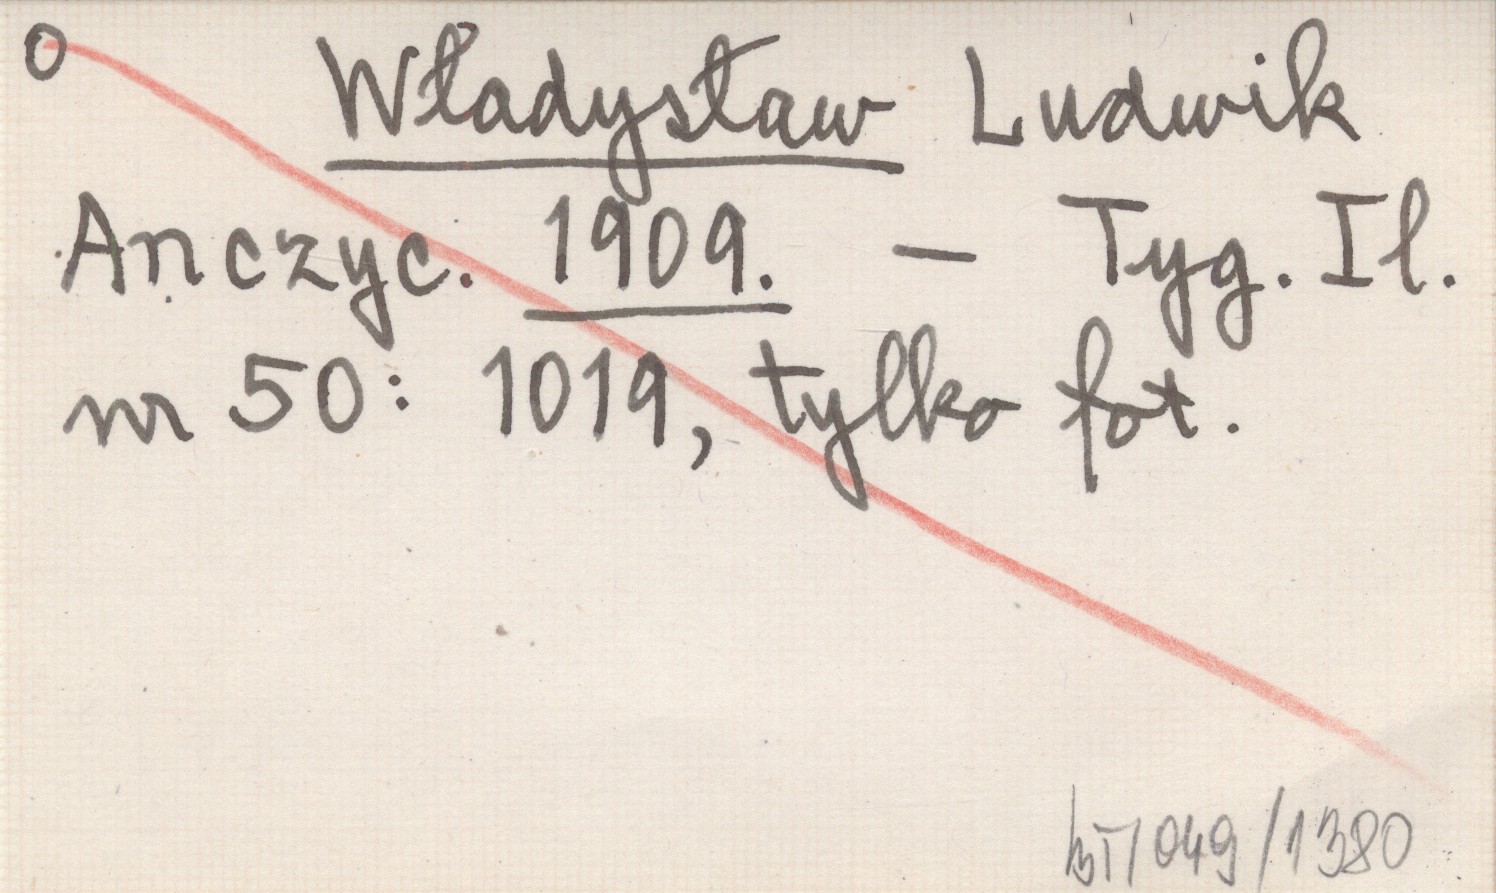 O Władysław Ludwik
Anczyc. 1909. — Tyg. Il.
nr 50: 1019, tylko fot.
/049/1380